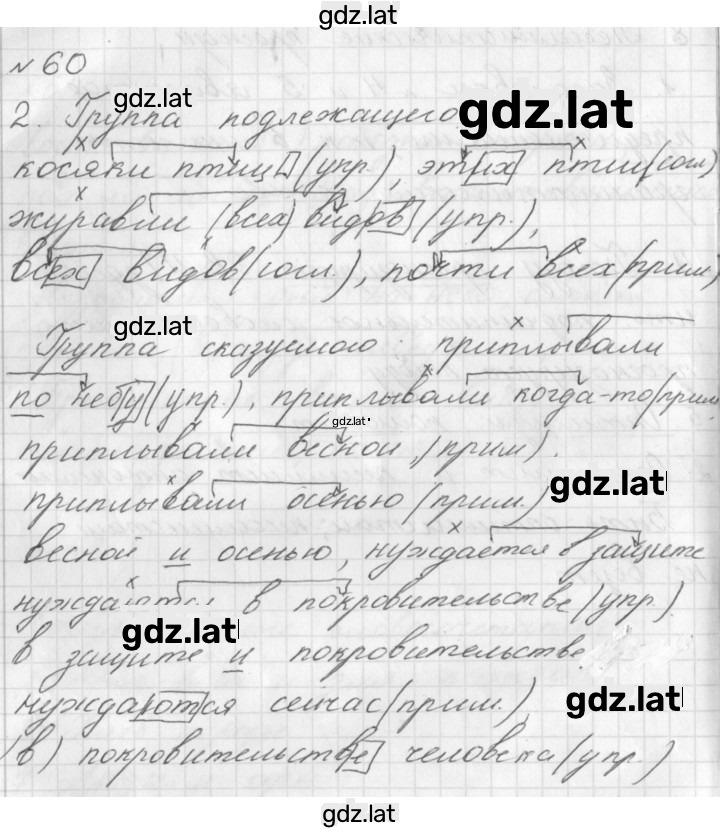 gdz.lat
№ 60
gdz.lat
2. Группа подлежащего
gdz.lat
косяки птиц (упр.), этих птиц (согл)
журавли (всех) видов (упр.),
всех видов (согл.), почти всех (прим)
gdz.lat
Группа сказуемого: приплывали
по небу (упр.), приплывали когда-то (прим
gdz.lat
приплывали весной, (прим).
gdz.lat
приплывали осенью (прим.)
весной и осенью, нуждается в защите
нуждаются в покровительстве (упр.)
gdz.lat
в защите и покровительстве
gdz.lat
нуждаются сейчас (прим.)
(в) покровительстве человека (упр.)
gdz.lat